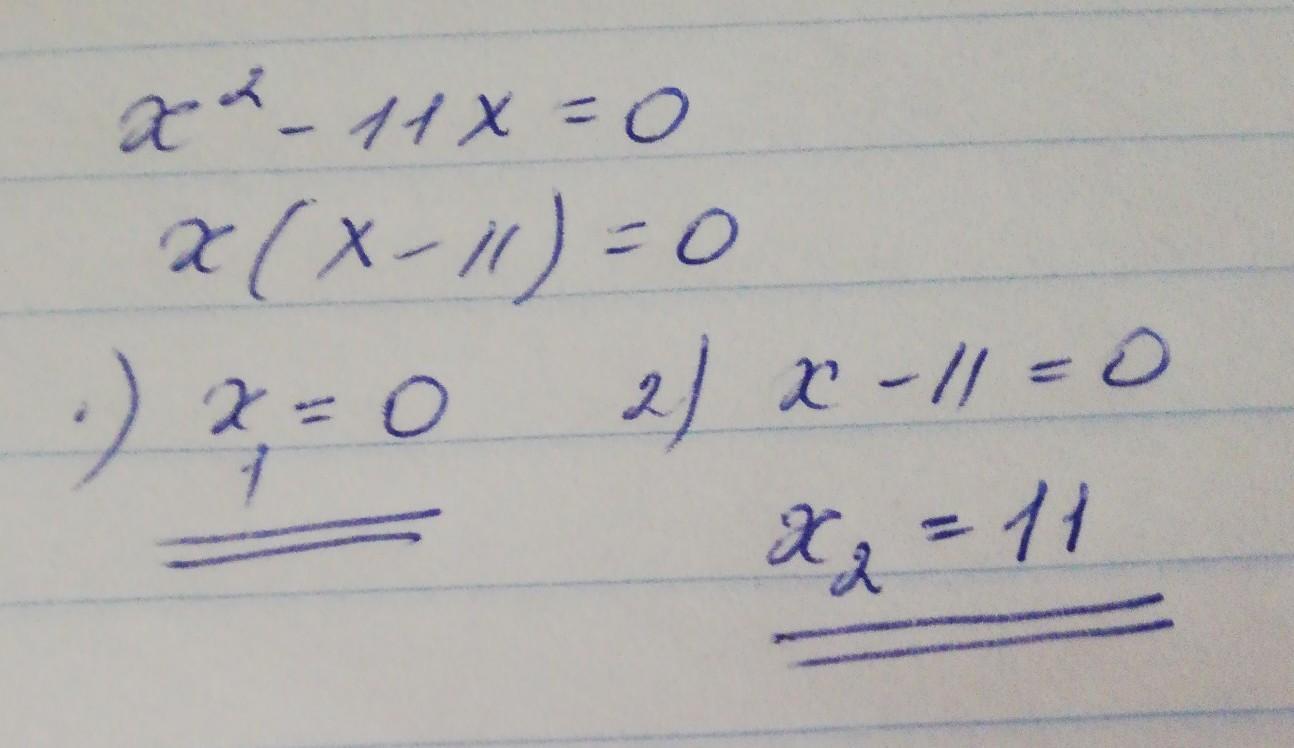 x² - 11x = 0
x(x - 11) = 0
·) x₁ = 0 2) x - 11 = 0
x₂ = 11